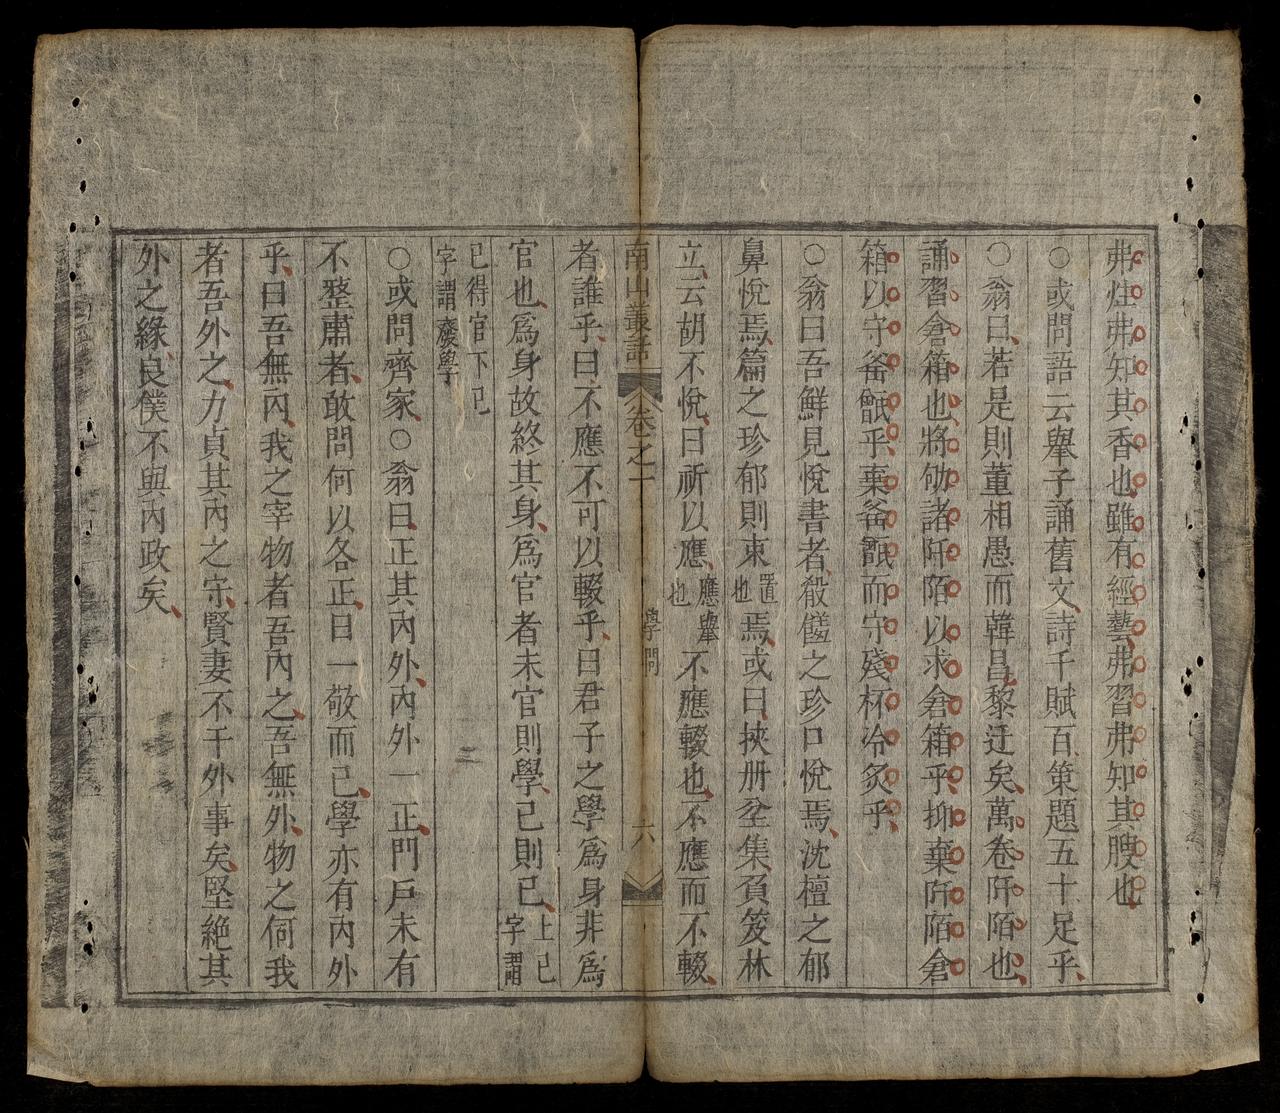 弗炷弗知其香也雖有經藝弗習弗知其腴也
○或問語云擧子誦舊文詩千賦百策題五十足乎
○翁曰若是則董相愚而韓昌黎迂矣萬卷阡陌也
誦習倉箱也將劬諸阡陌以求倉箱乎抑棄阡陌倉
箱以守䍃甑乎棄䍃甑而守殘杯冷炙乎
○翁曰吾鮮見悅書者殽饈之珍口悅焉沈檀之郁
鼻悅焉篇之珍郁則束置也焉或曰挾册坌集負笈林
立云胡不悅曰祈以應應擧也不應輟也不應而不輟
南山叢話 卷之一 學問 六
者誰乎曰不應不可以輟乎曰君子之學爲身非爲
官也爲身故終其身爲官者未官則學已則已上已字謂
已得官下已字謂廢學
○或問齊家○翁曰正其內外內外一正門戶未有
不整肅者敢問何以各正曰一敬而已學亦有內外
乎曰吾無內我之宰物者吾內之吾無外物之伺我
者吾外之力貞其內之守賢妻不干外事矣堅絶其
外之緣良僕不與內政矣